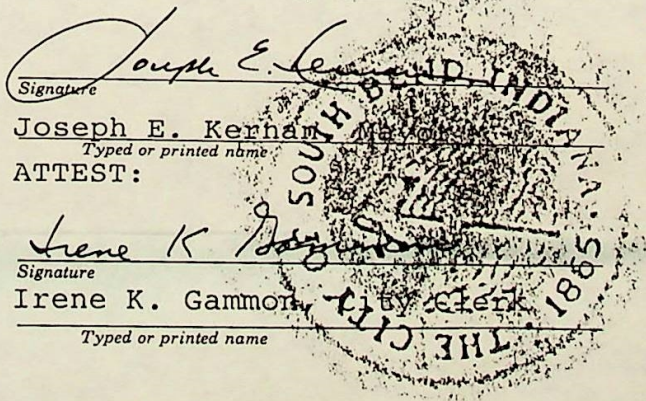 Joseph E. Kernan
Signature
Joseph E. Kernan, Mayor
Typed or printed name
ATTEST:
Irene K Gammon
Signature
Irene K. Gammon, City Clerk
Typed or printed name
THE CITY OF SOUTH BEND, INDIANA. 1865.